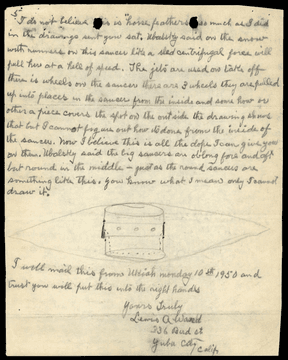 5
I do not believe this is horse feathers as much as I did
in the drawings sent you sat. Wolsty said on the snow
with runners on this saucer like a sled centrifugal force will
pull her at a hell of speed. The jets are used on take off
there is wheels on the saucer there are 3 wheels they are pulled
up into places in the saucer from the inside and some how or
other a piece covers the spot on the outside the drawing shows
that but I cannot figure out how it done from the inside of
the saucer. Now I believe this is all the dope I can give you
on them. Wolsty said the big saucers are oblong fore and aft
but round in the middle – just as the round saucers are
something like this. you know what I mean only I cannot
draw it.
I will mail this from Ukiah monday 10th 1950 and
trust you will put this into the right hands
Yours Truly
Lewis A
St
Yuba City
Calif.